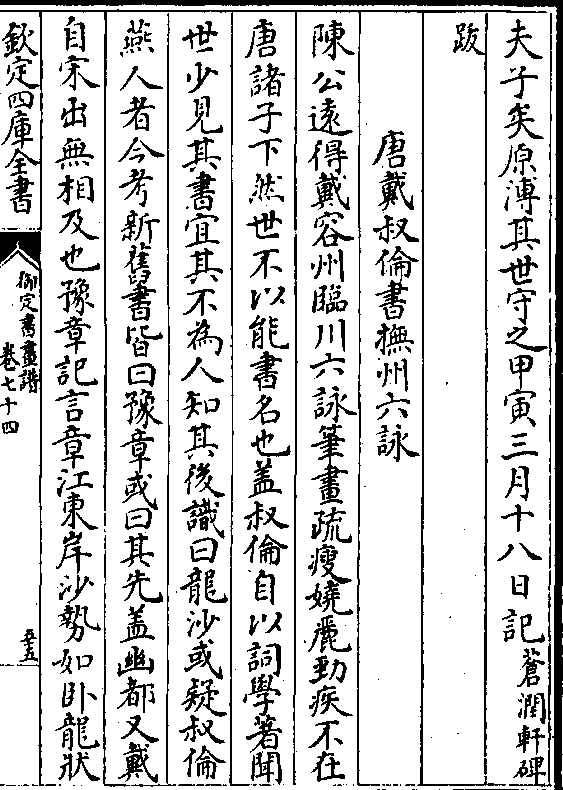 夫子矣原溥其世守之甲寅三月十八日記蒼潤軒碑
跋
唐戴叔倫書撫州六詠
陳公遠得戴容州臨川六詠筆畫疏瘦嬈麗勁疾不在
唐諸子下然世不以能書名也蓋叔倫自以詞學著聞
世少見其書宜其不為人知其後識曰龍沙或疑叔倫
燕人者今考新舊書皆曰豫章或曰其先蓋幽都又戴
自宋出無相及也豫章記言章江東岸沙勢如卧龍狀
欽定四庫全書
御定書畫譜
卷七十四
五十五